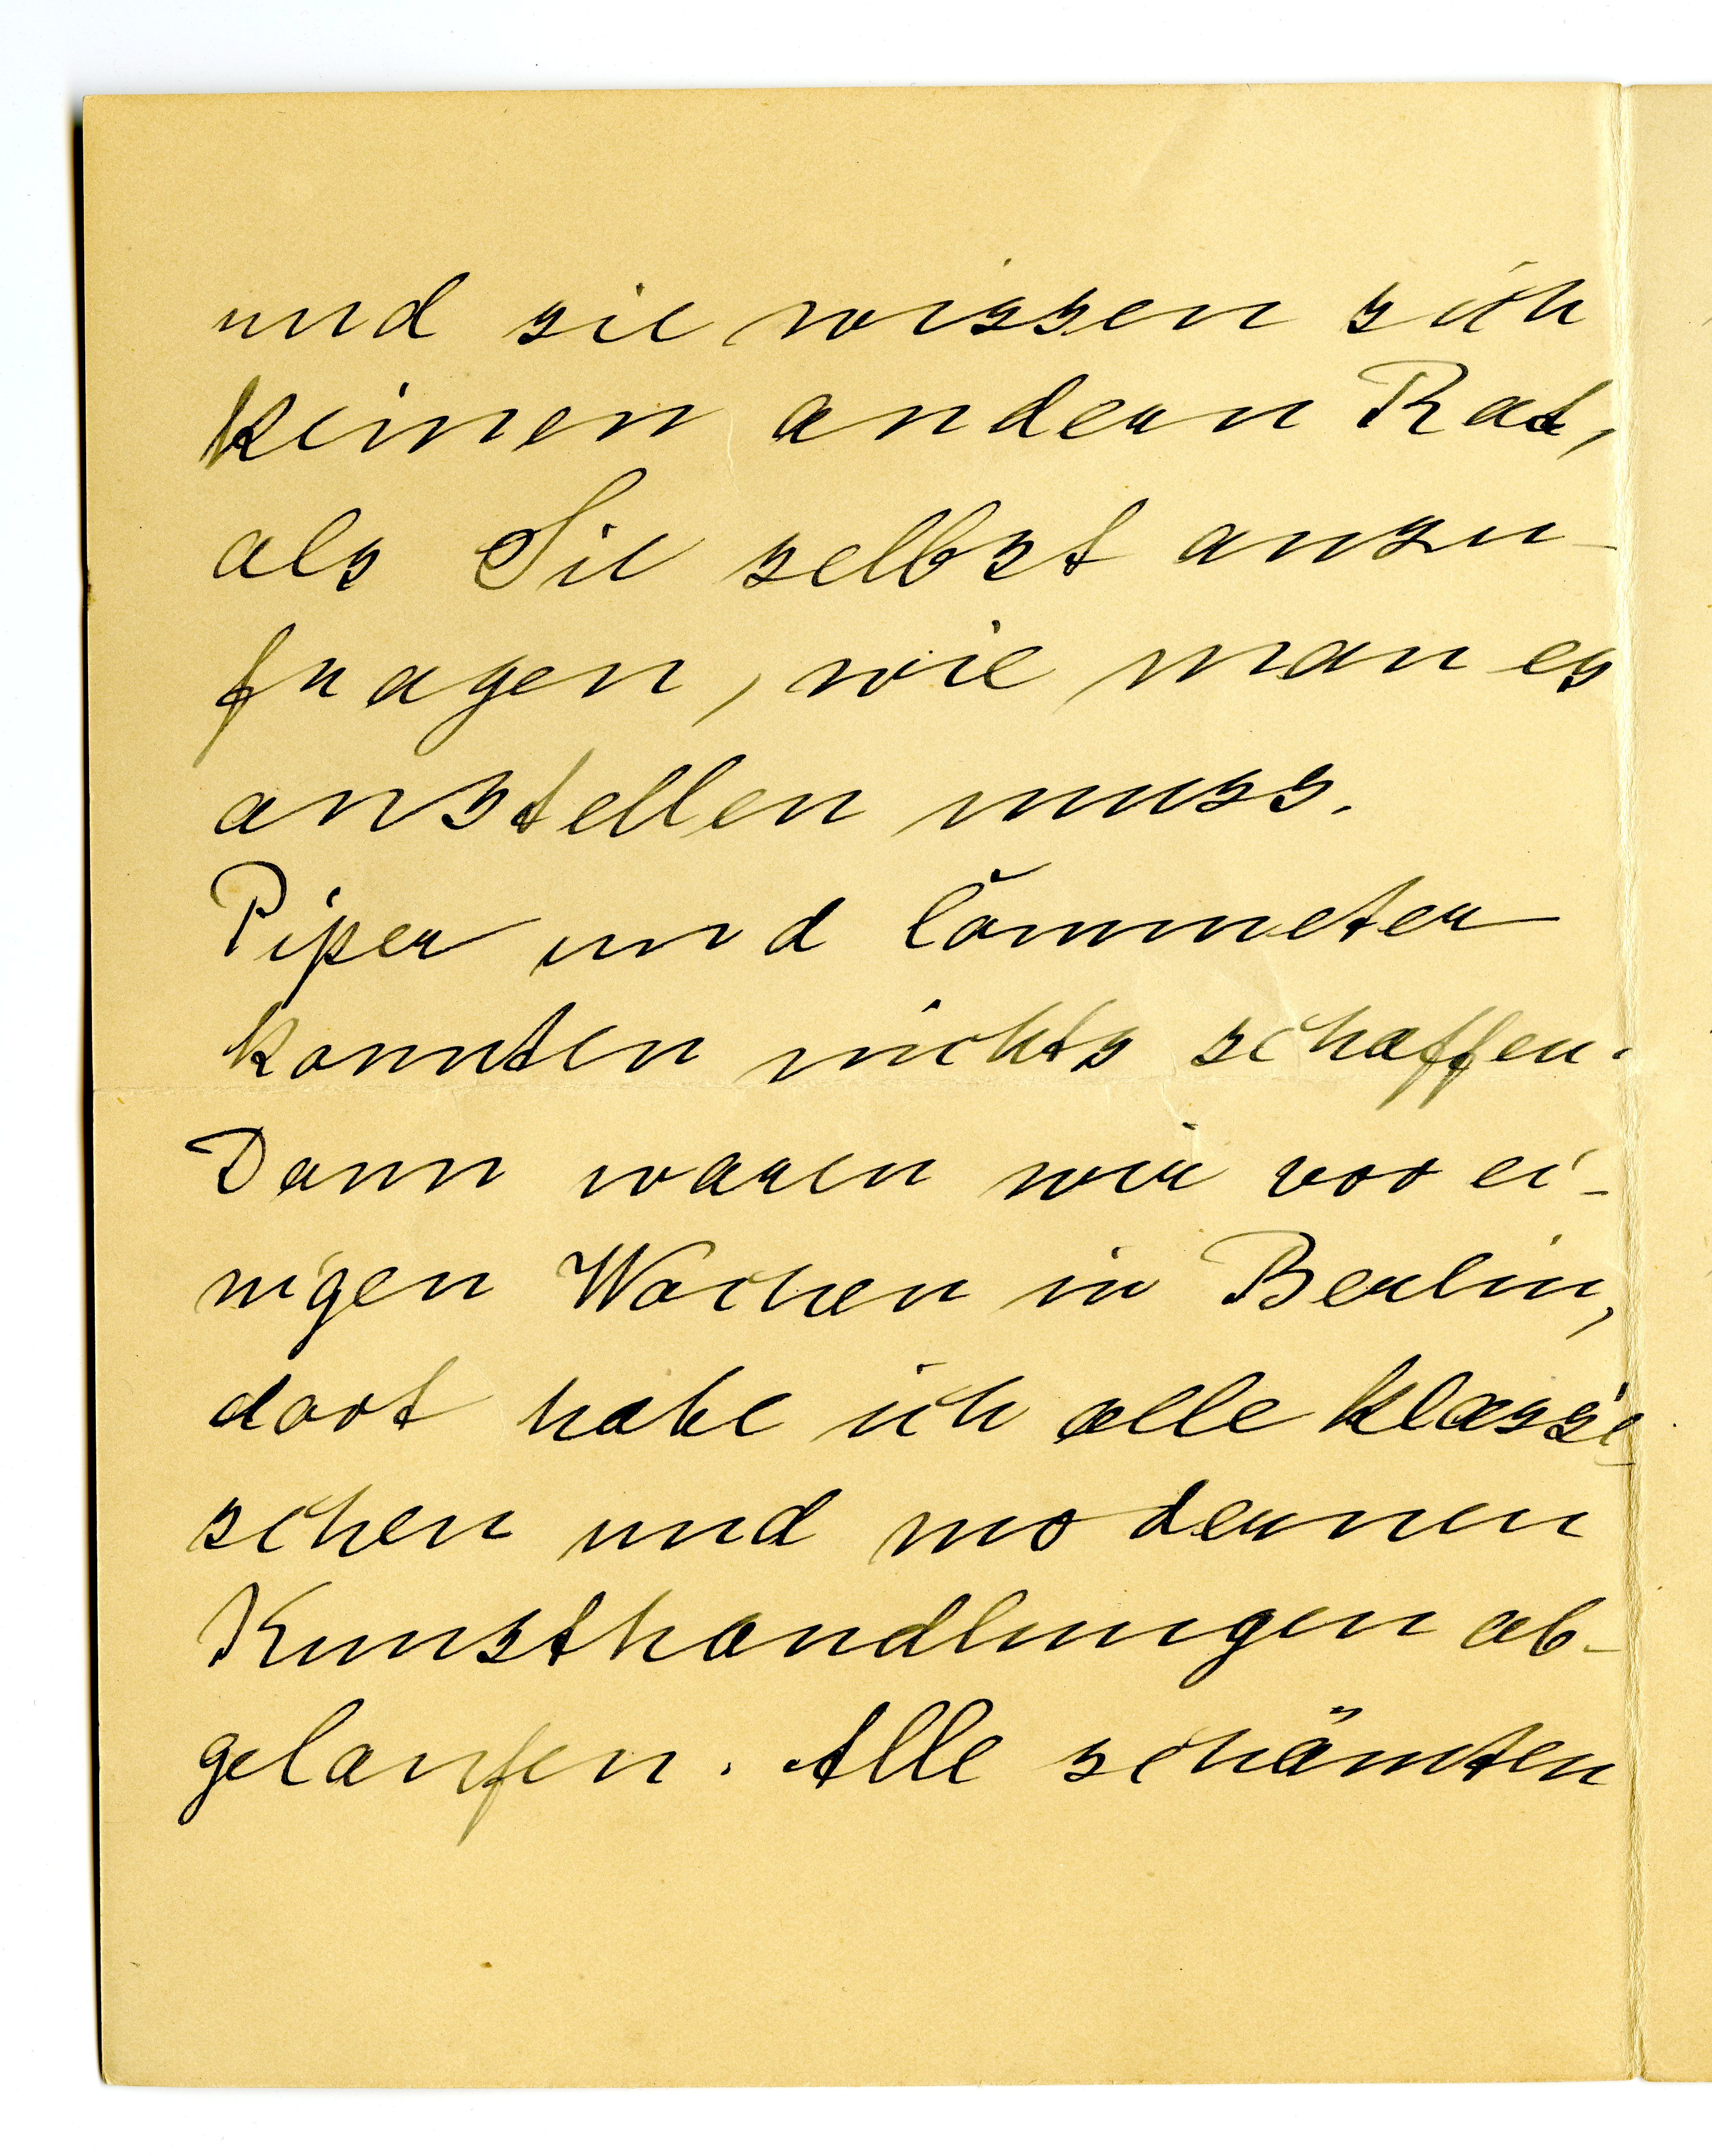 und sie wissen sich
keinen andern Rat,
als Sie selbst anzu-
fragen, wie man es
anstellen muss.
Piper und Cömmeter
konnten nichts schaffen.
Dann waren wir vor ei-
nigen Wochen in Berlin,
dort habe ich alle klassi-
schen und modernen
Kunsthandlungen ab-
gelaufen. Alle schämten